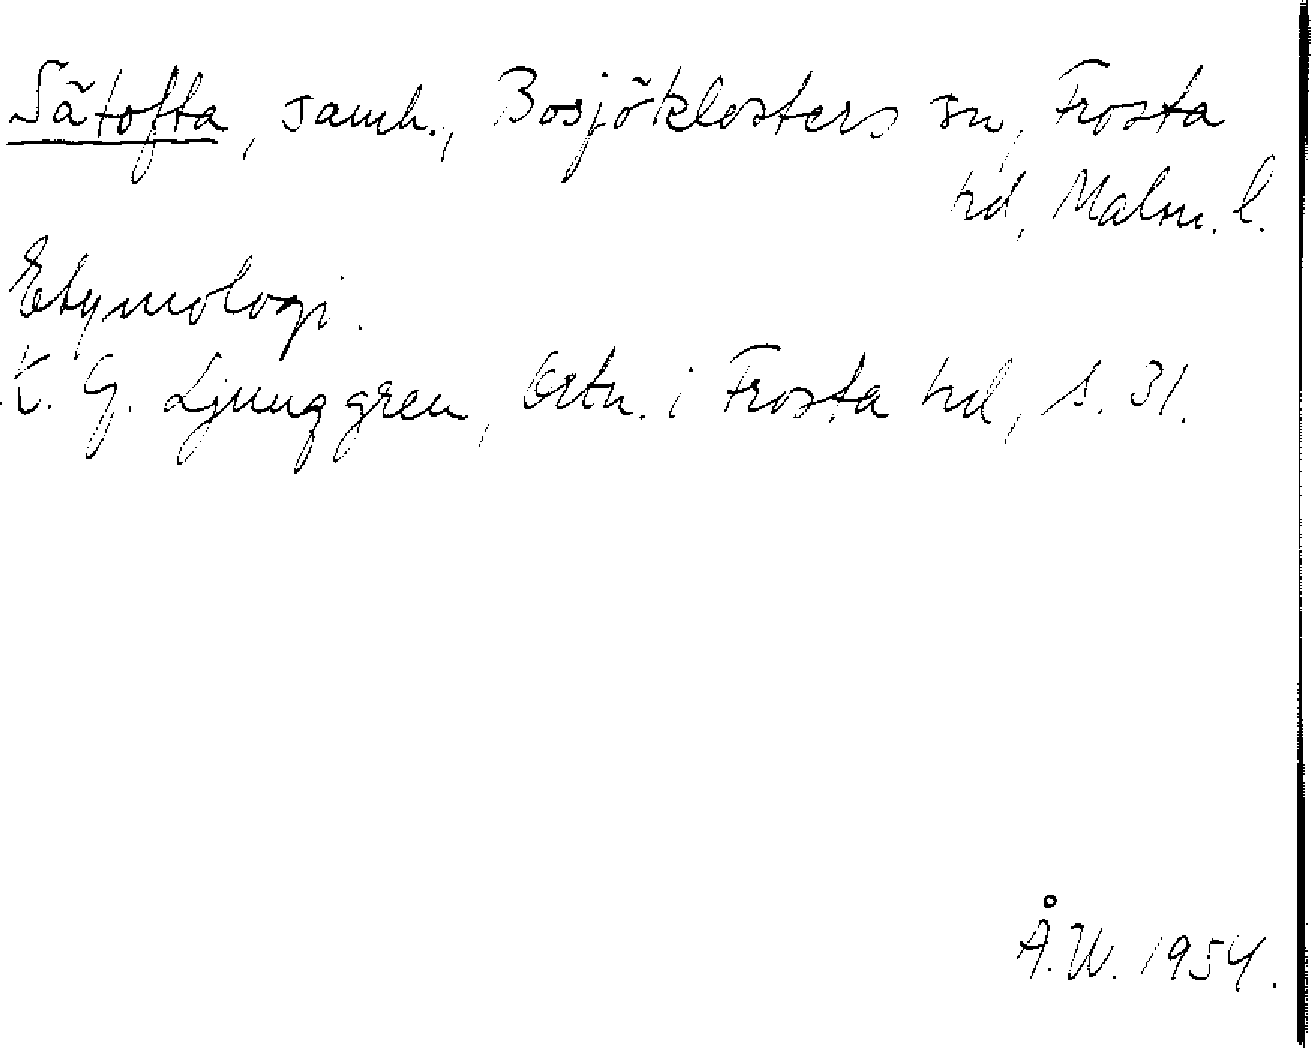 Sätofta, samh., Bosjöklosters sn, Frosta
hd, Malm. l.
Etymologi.
K. G. Ljunggren, Ortn. i Frosta hd, s. 31.
Å.W. 1954.